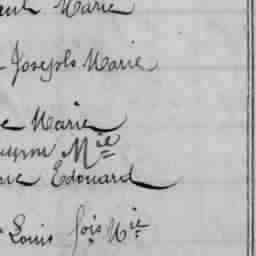 Marie
Joseph Marie
Marie
Mie
Edouard
Louis fois Mie